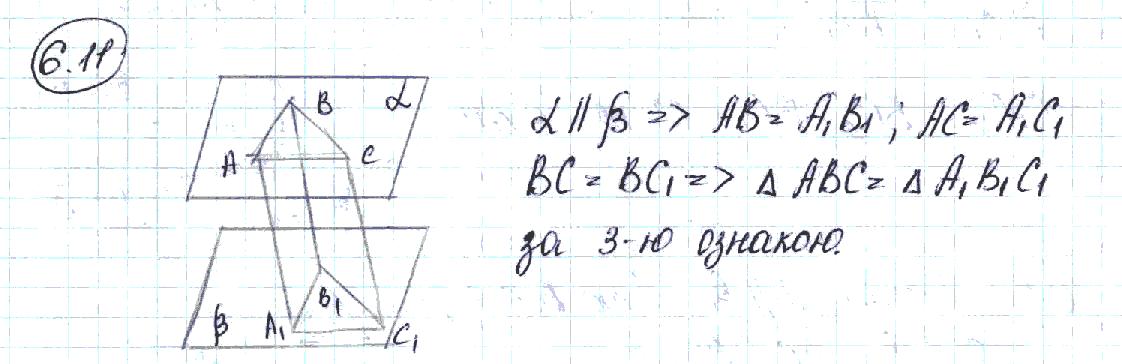 6.11
B α
A C
B₁
β A₁ C₁
α || β => AB = A₁B₁; AC = A₁C₁
BC = BC₁ => Δ ABC = Δ A₁B₁C₁
за 3-ю ознакою.